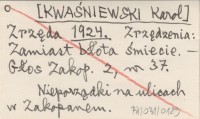 [KWAŚNIEWSKI Karol]
Zrzęda 1924. Zrządzenia:
Zamiast błota śmiecie. –
Głos Zakop. 2, nr 37.
Nieporządki na ulicach
w Zakopanem.